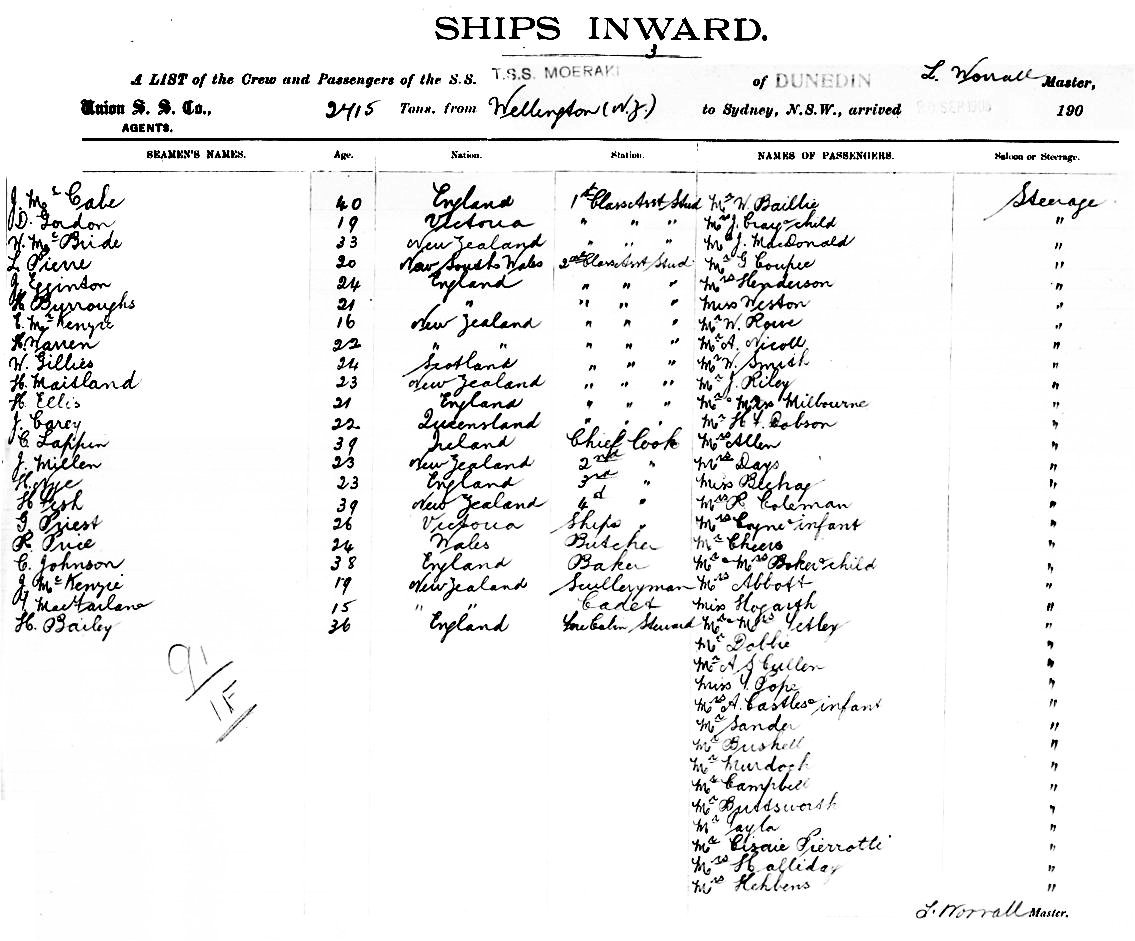 SHIPS INWARD.
3
A LIST of the Crew and Passengers of the S.S. T.S.S. MOERAKI of DUNEDIN L. Worrall Master,
Union S. S. Co., 2415 Tons. from Wellington (N.Z.) to Sydney, N.S.W., arrived SEP 190
AGENTS.
SEAMEN'S NAMES. Age. Nation. Station. NAMES OF PASSENGERS. Saloon or Steerage.
J. McCabe 40 England 1st Class Asst Stud Mr W. Baillie Steerage
D. Gordon 19 Victoria " " " Mrs J. Cray & child "
W. McBride 33 New Zealand " " " Mr J. MacDonald "
L. Pierre 20 New South Wales 2nd Class Asst Stud Mr G Coupee "
J. Egginton 24 England " " " Mrs Henderson "
H. Burroughs 21 " " " " Miss Weston "
E. McKenzie 16 New Zealand " " " Mr W. Rowe "
H. Warren 22 " " " " " Mr A. Nicoll "
W. Gillies 24 Scotland " " " Mr W. Smith "
H. Maitland 23 New Zealand " " " Mr J. Riley "
H. Ellis 21 England " " " Mr & Mrs Milbourne "
J. Carey 22 Queensland " " " Mr H. Dobson "
C. Lappin 39 Ireland Chief Cook Mrs Allen "
J. Millen 23 New Zealand 2nd " Mrs Days "
H. Nye 23 England 3rd " Miss Bechaz "
H. Fish 39 New Zealand 4d " Mrs R Coleman "
G. Priest 26 Victoria Ships " Mrs Coyne & infant "
R. Price 24 Wales Butcher Mr Cheers "
C. Johnson 38 England Baker Mr & Mrs Baker & child "
J. McKenzie 19 New Zealand Sculleryman Mrs Abbott "
MacFarlane 15 " " Cadet Miss Hogarth "
H. Bailey 36 England Fore Cabin Steward Mr & Mrs Tetley "
Mr Dobbie "
91 Mr A S Cullen "
1F Miss Y. Pope "
Mrs A. Castles & infant "
Mr Sander "
Mr Bushell "
Mr Murdoch "
Mr Campbell "
Mr Buttsworth "
Mr Tayla "
Mr Cizaie Pierrotti "
Mrs Halliday "
Mrs Hehbens "
L. Worrall Master.